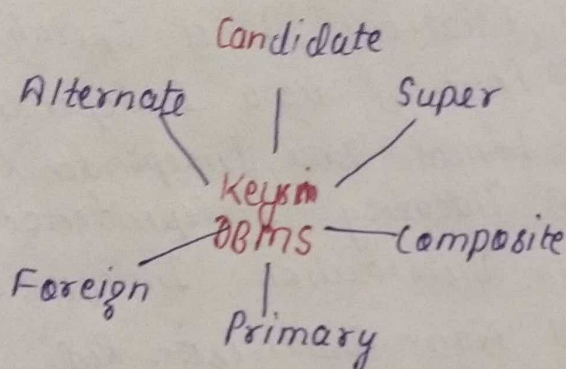 Candidate
Alternate
Super
Keys in
DBMS
Composite
Foreign
Primary